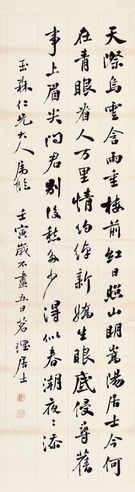 天際烏雲含雨重樓前紅日照山明嵩陽居士今何
在青眼看人萬里情約綽新嬌生眼底侵尋舊
事上眉尖問君別後愁多少得似春潮夜〻添
玉森仁兄大人屬 壬寅歲不盡五日 居士